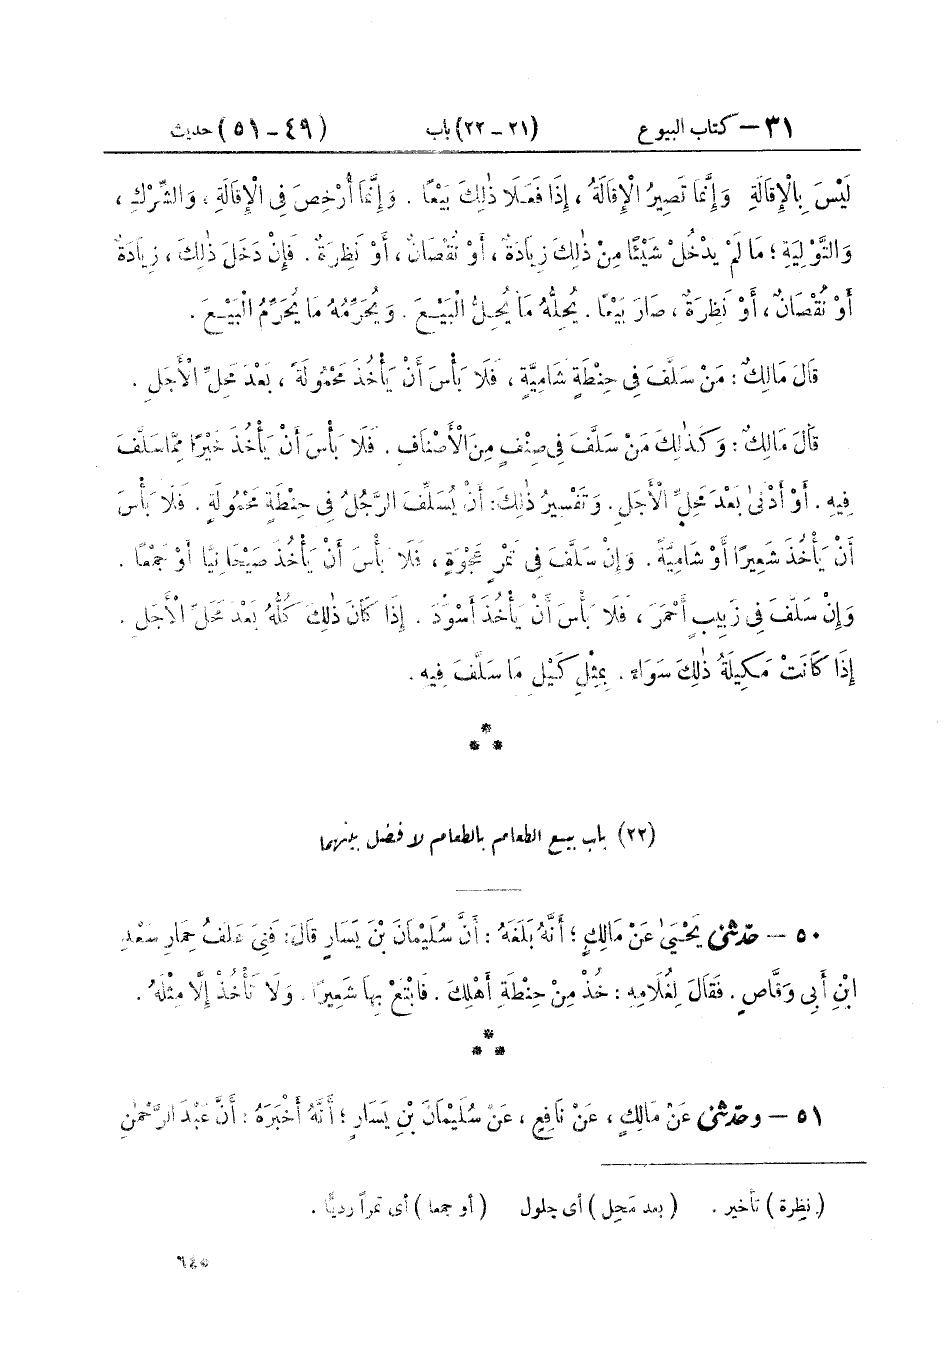 ٣١ – كتاب البيوع (٢١ – ٢٢) باب (٤٩ – ٥١) حديث
لَيْسَ بِالْإِقَالَةِ وَإِنَّمَا تَصِيرُ الْإِقَالَةُ ، إِذَا فَعَلَا ذٰلِكَ بَيْعًا . وَإِنَّمَا أُرْخِصَ فِي الْإِقَالَةِ ، وَالشِّرْكِ ،
وَالتَّوْلِيَةِ ؛ مَا لَمْ يَدْخُلْ شَيْئًا مِنْ ذٰلِكَ زِيَادَةٌ ، أَوْ نُقْصَانٌ ، أَوْ نَظِرَةٌ . فَإِنْ دَخَلَ ذٰلِكَ ، زِيَادَةٌ
أَوْ نُقْصَانٌ ، أَوْ نَظِرَةٌ ، صَارَ بَيْعًا . يُحِلُّهُ مَا يُحِلُّ الْبَيْعَ . وَيُحَرِّمُهُ مَا يُحَرِّمُ الْبَيْعَ .
قَالَ مَالِكٌ : مَنْ سَلَّفَ فِي حِنْطَةٍ شَامِيَّةٍ ، فَلَا بَأْسَ أَنْ يَأْخُذَ مَحْمُولَةً ، بَعْدَ مَحِلِّ الْأَجَلِ .
قَالَ مَالِكٌ : وَكَذٰلِكَ مَنْ سَلَّفَ فِي صِنْفٍ مِنَ الْأَصْنَافِ . فَلَا بَأْسَ أَنْ يَأْخُذَ خَيْرًا مِمَّا سَلَّفَ
فِيهِ . أَوْ أَدْنَى بَعْدَ مَحِلِّ الْأَجَلِ . وَتَفْسِيرُ ذٰلِكَ : أَنْ يُسَلِّفَ الرَّجُلُ فِي حِنْطَةٍ مَحْمُولَةٍ . فَلَا بَأْسَ
أَنْ يَأْخُذَ شَعِيرًا أَوْ شَامِيَّةً . وَإِنْ سَلَّفَ فِي تَمْرٍ عَجْوَةٍ ، فَلَا بَأْسَ أَنْ يَأْخُذَ صَيْحَانِيًّا أَوْ جَمْعًا .
وَإِنْ سَلَّفَ فِي زَبِيبٍ أَحْمَرَ ، فَلَا بَأْسَ أَنْ يَأْخُذَ أَسْوَدَ . إِذَا كَانَ ذٰلِكَ كُلُّهُ بَعْدَ مَحِلِّ الْأَجَلِ .
إِذَا كَانَتْ مَكِيلَةُ ذٰلِكَ سَوَاءً . بِمِثْلِ كَيْلِ مَا سَلَّفَ فِيهِ .
* * *
(٢٢) باب بيع الطعام بالطعام لا فضل بينهما
٥٠ – حدّثنى يَحْيَى عَنْ مَالِكٍ ؛ أَنَّهُ بَلَغَهُ : أَنَّ سُلَيْمَانَ بْنَ يَسَارٍ قَالَ : فَنِيَ عَلَفُ حِمَارِ سَعْدِ
ابْنِ أَبِي وَقَّاصٍ . فَقَالَ لِغُلَامِهِ : خُذْ مِنْ حِنْطَةِ أَهْلِكَ . فَابْتَعْ بِهَا شَعِيرًا . وَلَا تَأْخُذْ إِلَّا مِثْلَهُ .
* * *
٥١ – وحدّثنى عَنْ مَالِكٍ ، عَنْ نَافِعٍ ، عَنْ سُلَيْمَانَ بْنِ يَسَارٍ ؛ أَنَّهُ أَخْبَرَهُ : أَنَّ عَبْدَ الرَّحْمٰنِ
(نظرة) تأخير . (بعد مَحِل) أى حلول (أو جمعا) أى تمراً رديًّا .
٦٤٥